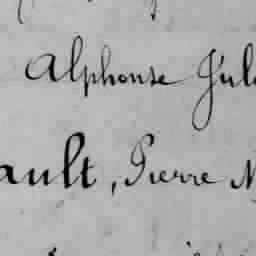 Alphonse Jul
ault, Pierre N